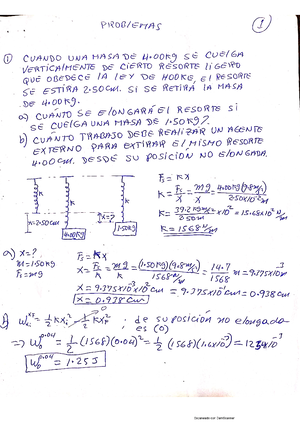 PROBLEMAS
1
① CUANDO UNA MASA DE 4.00Kg SE CUELGA
VERTICALMENTE DE CIERTO RESORTE LIGERO
QUE OBEDECE LA LEY DE HOOKE, EL RESORTE
SE ESTIRA 2.50cm. SI SE RETIRA LA MASA
DE 4.00Kg.
a) CUÁNTO SE ELONGARÁ EL RESORTE SI
SE CUELGA UNA MASA DE 1.50Kg?
b) CUÁNTO TRABAJO DEBE REALIZAR UN AGENTE
EXTERNO PARA ESTIRAR EL MISMO RESORTE
4.00cm. DESDE SU POSICIÓN NO ELONGADA.
x=2.50cm
4.00Kg
x=?
1.50Kg
K = 1568 N/m
a) x=?
m=1.50Kg
F=mg
F=Kx
x = F/K = mg/K = (1.50Kg)(9.8m/s²)/1568 N/m = 14.7/1568 m = 9.375x10⁻³
x = 9.375x10⁻³x10²cm = 9.375x10⁻¹cm = 0.938cm
x = 0.938 cm
b)
; de su posición no elongada
es (0)
⇒ W = 1/2 (1568)(0.04)² = 1/2 (1568)(1.6x10⁻³)
W = 1.25 J
Escaneado con CamScanner